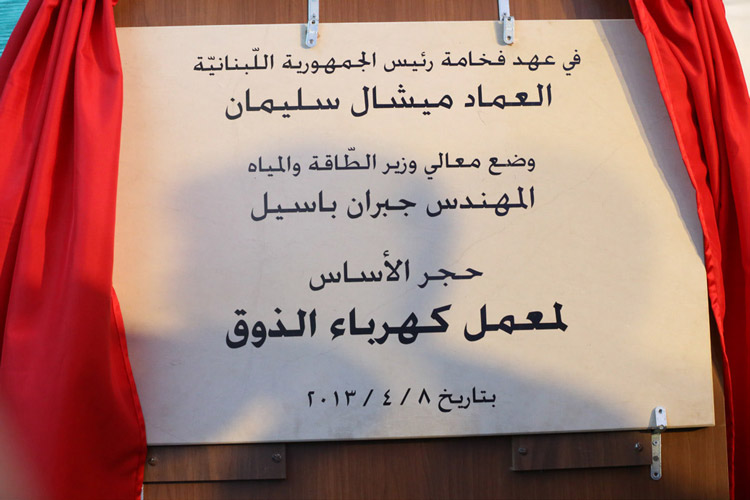 في عهد فخامة رئيس الجمهورية اللّبنانيّة
العماد ميشال سليمان
وضع معالي وزير الطّاقة والمياه
المهندس جبران باسيل
حجر الأساس
لمعمل كهرباء الذوق
بتاريخ ٨ / ٤ / ٢٠١٣